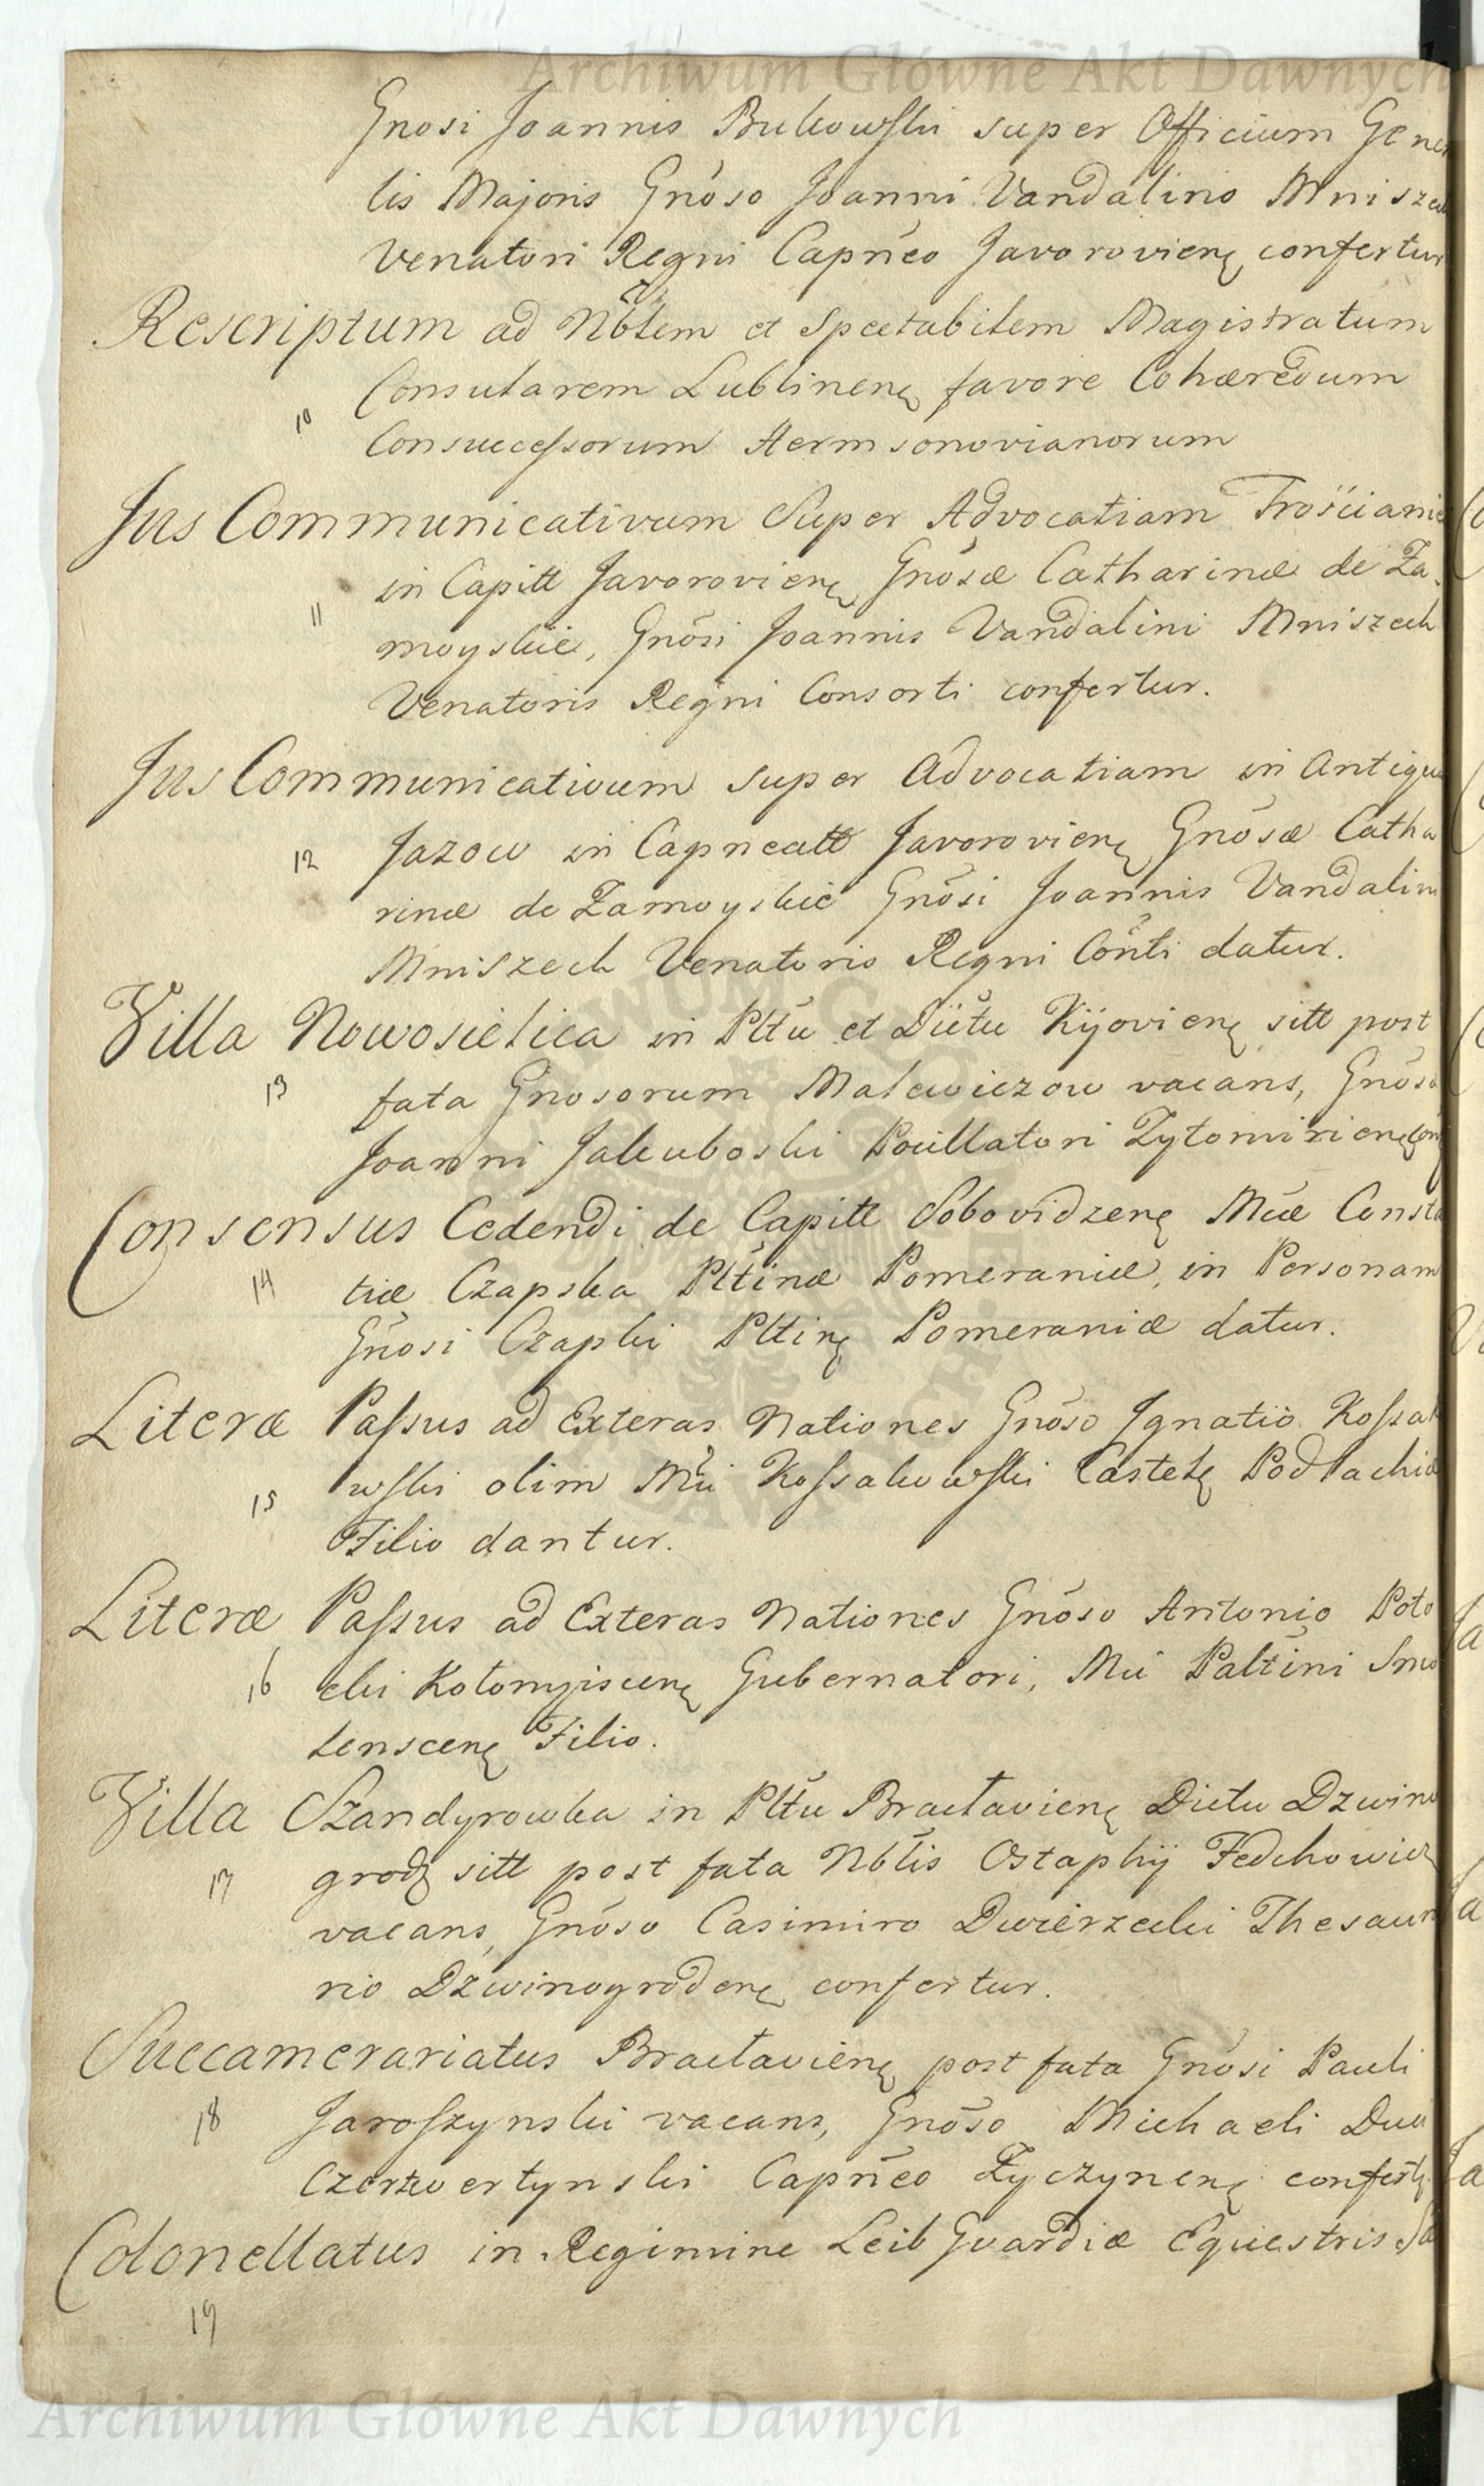 Archiwum Główne Akt Dawnych
Gnosi Joannis Bukowski super Officium Gene
lis Majoris Gnoso Joanni Vandalino Mnisze
Venatori Regni Capneo Javorovien confertur
Rescriptum ad Nbtem et Spectabilem Magistratum
10 Consularem Lublinen favore Cohæredum
Consuccessorum Hermsonovianorum
Jus Communicativum Super Advocatiam Trościanie
in Capitt Javorovien Gnosæ Catharinæ de Za
11 moyskie, Gnosi Joannis Vandalini Mniszech
Venatoris Regni Consorti confertur.
Jus Communicativum super Advocatiam in Antiqu
12 Jazow in Capneatt Javorovien Gnosæ Catha
rinæ de Zamoyskie Gnosi Joannis Vandalin
Mniszech Venatoris Regni Conti datur.
Villa Nowosielica in Pltu et Dittu Kijovien sitt post
13 fata Gnosorum Malewiczow vacans, Gnoso
Joanni Jakuboski Pocillatori Zytomirien
Consensus Cedendi de Capitt Sobovidzen Mcæ Consta
14 tiæ Czapska Pltinæ Pomeraniæ, in Personam
Gnosi Czapski Pltin Pomeraniæ datur.
Literæ Passus ad Exteras Nationes Gnoso Ignatio Kossak
15 wski olim Mci Kossakowski Castel Podlachiæ
Filio dantur.
Literæ Passus ad Exteras Nationes Gnoso Antonio Poto
16 cki Kolomyiscen Gubernatori, Mci Paltini Smo
lenscen Filio.
Villa Szandyrowka in Pltu Braclavien Dictu Dzwino
17 grod sitt post fata Nbtis Ostaphij Fedchowicz
vacans, Gnoso Casimiro Dwierzcki Thesaura
rio Dzwinogroden confertur.
Succamerariatus Braclavien post fata Gnosi Pauli
18 Jaroszynski vacans, Gnoso Michaeli Duci
Czertwertynski Capneo Zyczynen confert
Colonellatus in Regimine Leib Guardiæ Equestris
19
Archiwum Główne Akt Dawnych